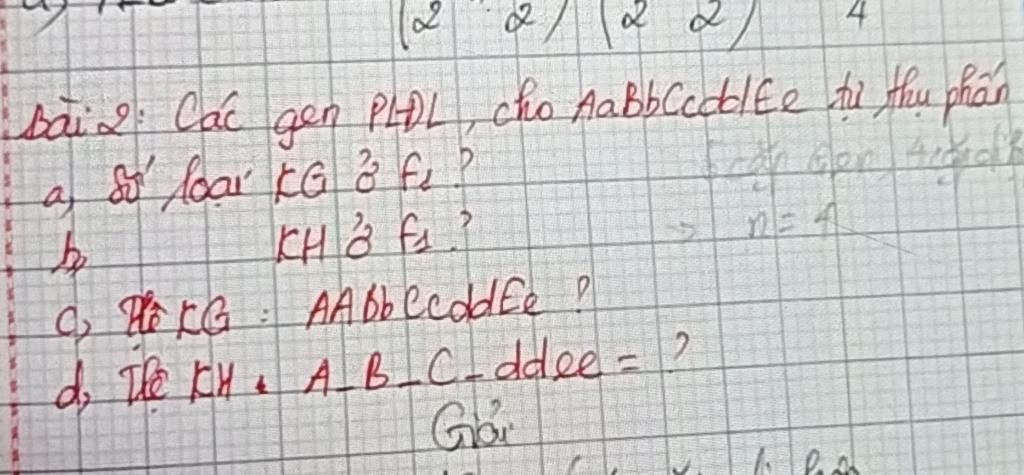 (2 2) (2 2) 4
bài 2: Các gen PLĐL, cho AaBbCcddEe tự thụ phấn
a, Số loại KG ở F1?
b, KH ở F1?
=> n = 4
c, Tỉ lệ KG: AABbCcddEe?
d, Tỉ lệ KH: A_B_C_ddee = ?
Giải